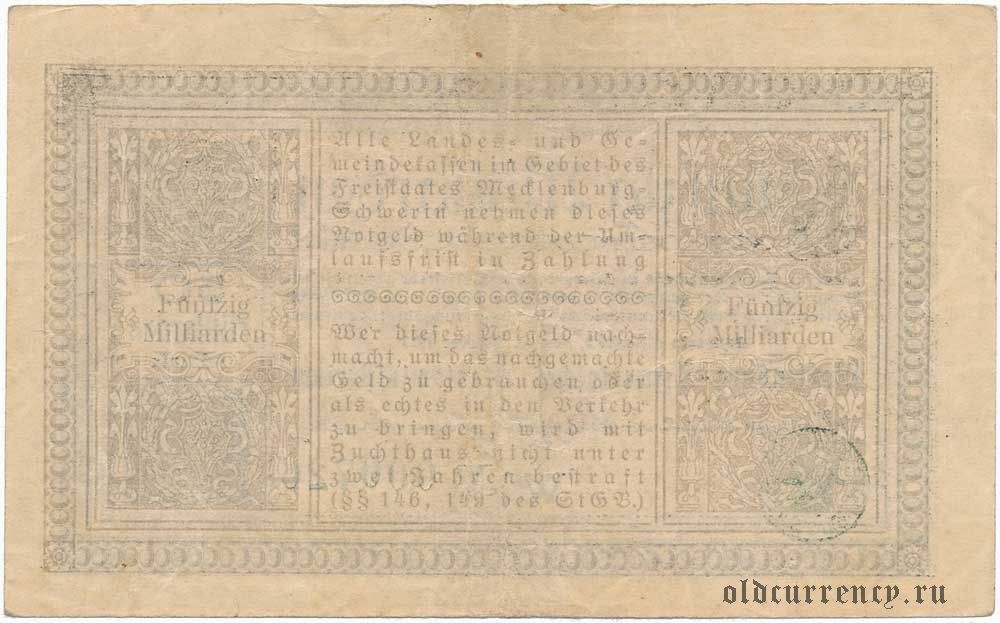 Alle Landes- und Ge-
meindekassen im Gebiet des
Freistaates Mecklenburg-
Schwerin nehmen dieses
Notgeld während der Um-
laufsfrist in Zahlung
Fünfzig
Milliarden
Fünfzig
Milliarden
Wer dieses Notgeld nach-
macht, um das nachgemachte
Geld zu gebrauchen oder
als echtes in den Verkehr
zu bringen, wird mit
Zuchthaus nicht unter
zwei Jahren bestraft
(§§ 146, 149 des StGB.)
oldcurrency.ru